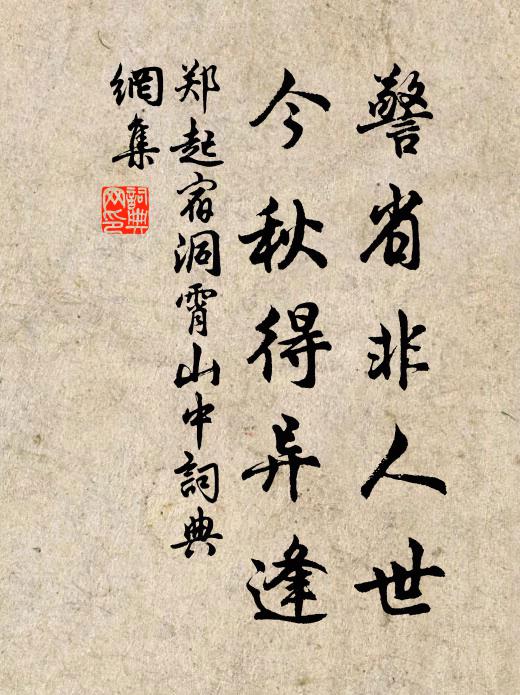 警省非人世
今秋得异逢
郑起宿洞霄山中詞典
網集
詞典網印